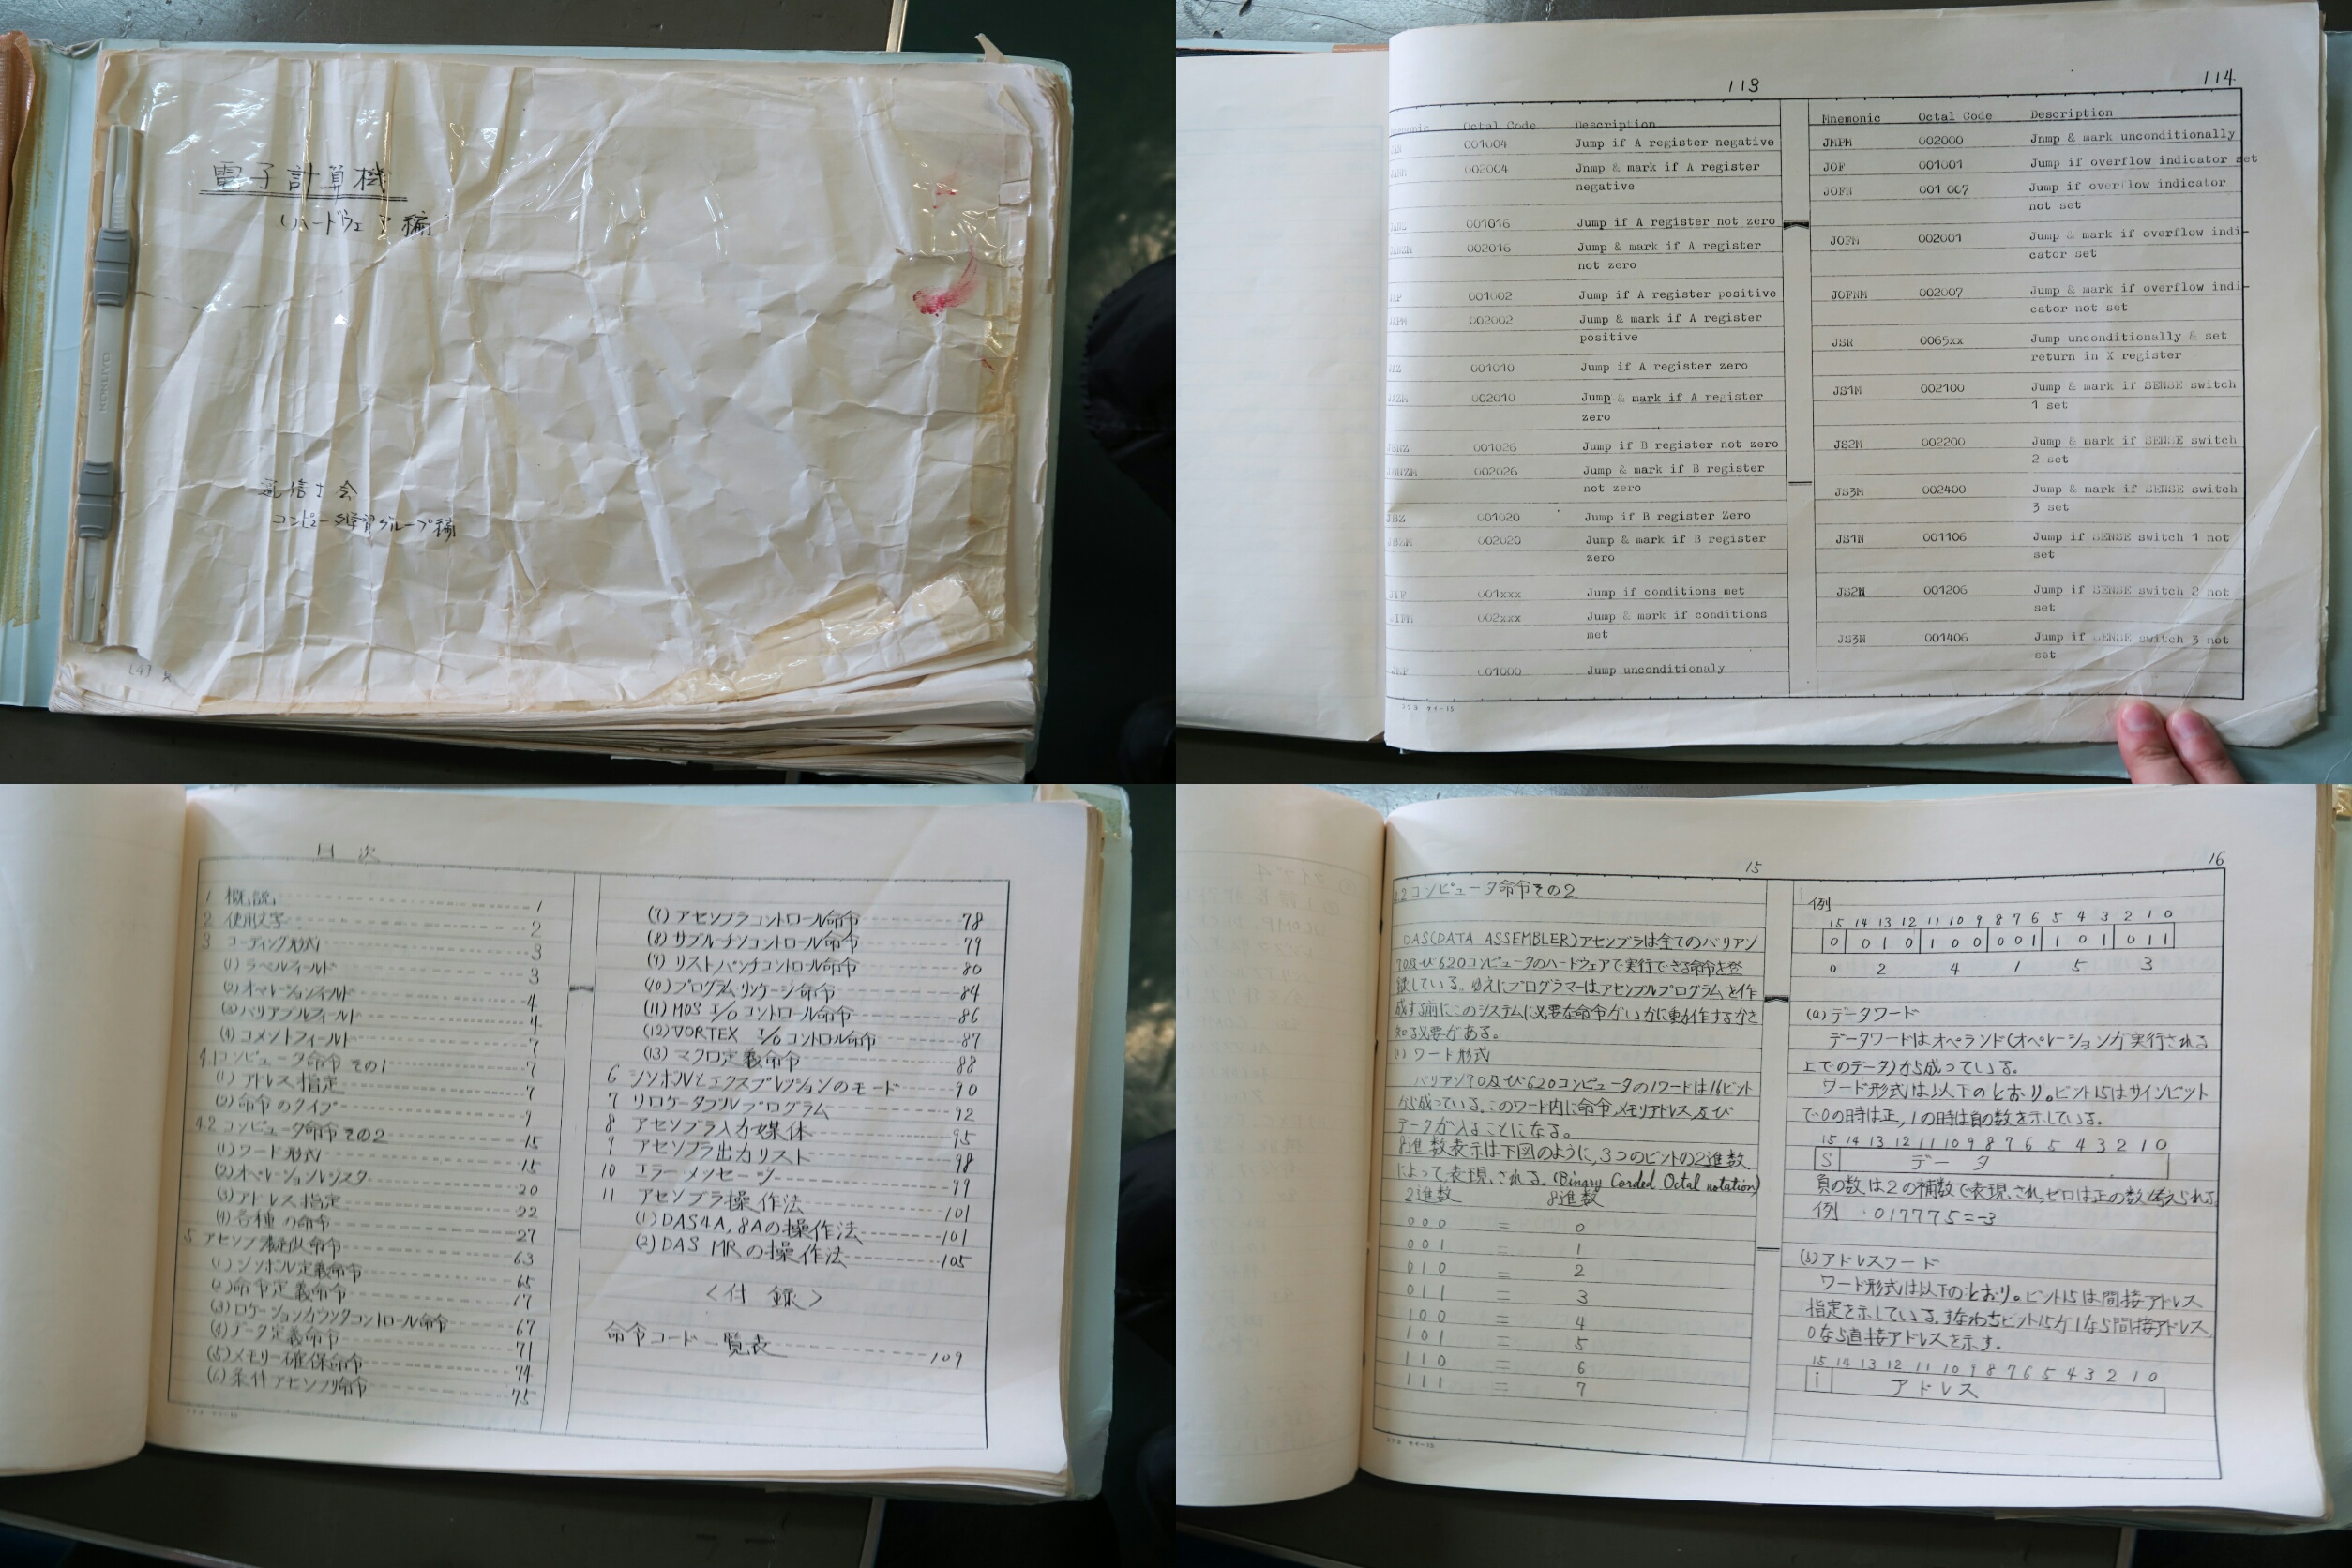 電子計算機
(ハードウェア編)
通信士会
コンピュータ学習グループ編
KOKUYO
113
Octal Code Description
001004 Jump if A register negative
002004 Jnmp & mark if A register
negative
001016 Jump if A register not zero
002016 Jump & mark if A register
not zero
001002 Jump if A register positive
002002 Jump & mark if A register
positive
001010 Jump if A register zero
002010 Jump & mark if A register
zero
001026 Jump if B register not zero
002026 Jump & mark if B register
not zero
001020 Jump if B register Zero
002020 Jump & mark if B register
zero
001xxx Jump if conditions met
002xxx Jump & mark if conditions
met
001000 Jump unconditionaly
コクヨ ケイ-15
114
Mnemonic Octal Code Description
JMPM 002000 Jnmp & mark unconditionally
JOF 001001 Jump if overflow indicator set
JOFN 001 007 Jump if overflow indicator
not set
JOFM 002001 Jump & mark if overflow indi-
cator set
JOFNM 002007 Jump & mark if overflow indi-
cator not set
JSR 0065xx Jump unconditionally & set
return in X register
JS1M 002100 Jump & mark if SENSE switch
1 set
JS2M 002200 Jump & mark if SENSE switch
2 set
JS3M 002400 Jump & mark if SENSE switch
3 set
JS1N 001106 Jump if SENSE switch 1 not
set
JS2N 001206 Jump if SENSE switch 2 not
set
JS3N 001406 Jump if SENSE switch 3 not
set
目 次
1 概説 1
2 使用文字 2
3 コーディング形式 3
(1) ラベルフィールド 3
(2) オペレーションフィールド 4
(3) バリアブルフィールド 4
(4) コメントフィールド 7
4.1 コンピュータ命令 その1 7
(1) アドレス指定 7
(2) 命令のタイプ 9
4.2 コンピュータ命令 その2 15
(1) ワード形式 15
(2) オペレーションレジスタ 20
(3) アドレス指定 22
(4) 各種の命令 27
5 アセンブラ擬似命令 63
(1) シンボル定義命令 65
(2) 命令定義命令 67
(3) ロケーションカウンタコントロール命令 67
(4) データ定義命令 71
(5) メモリー確保命令 74
(6) 条件アセンブリ命令 75
(7) アセンブラコントロール命令 78
(8) サブルーチンコントロール命令 79
(9) リスト/パンチコントロール命令 80
(10) プログラムリンケージ命令 84
(11) MOS I/Oコントロール命令 86
(12) VORTEX I/Oコントロール命令 87
(13) マクロ定義命令 88
6 シンボルとエクスプレッションのモード 90
7 リロケータブルプログラム 92
8 アセンブラ入力媒体 95
9 アセンブラ出力リスト 98
10 エラーメッセージ 99
11 アセンブラ操作法 101
(1) DAS4A, 8Aの操作法 101
(2) DAS MRの操作法 105
<付 録>
命令コード一覧表 109
15
4.2 コンピュータ命令その2
DAS(DATA ASSEMBLER)アセンブラは全てのバリアン
70及び620コンピュータのハードウェアで実行できる命令を登
録している。ゆえにプログラマーはアセンブルプログラムを作
成する前にこのシステムに必要な命令がいかに動作するかを
知る必要がある。
(1) ワード形式
バリアン70及び620コンピュータの1ワードは16ビット
から成っている。このワード内に命令,メモリアドレス,及び
データが入ることになる。
8進数表示は下図のように,3つのビットの2進数
によって表現される。(Binary Corded Octal notation)
2進数 8進数
000 = 0
001 = 1
010 = 2
011 = 3
100 = 4
101 = 5
110 = 6
111 = 7
コクヨ ケイ-15
16
例
15 14 13 12 11 10 9 8 7 6 5 4 3 2 1 0
0 0 1 0 1 0 0 0 0 1 1 0 1 0 1 1
0 2 4 1 5 3
(a) データワード
データワードはオペランド(オペレーションが実行される
上でのデータ)から成っている。
ワード形式は以下のとおり。ビット15はサインビット
で0の時は正,1の時は負の数を示している。
15 14 13 12 11 10 9 8 7 6 5 4 3 2 1 0
S データ
負の数は2の補数で表現され,ゼロは正の数と考えられる。
例 017775=-3
(b) アドレスワード
ワード形式は以下のとおり。ビット15は間接アドレス
指定を示している。すなわちビット15が1なら間接アドレス,
0なら直接アドレスを示す。
15 14 13 12 11 10 9 8 7 6 5 4 3 2 1 0
i アドレス